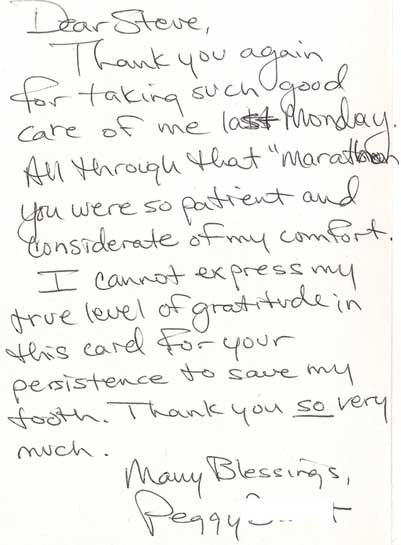 Dear Steve,
Thank you again
for taking such good
care of me last Monday.
All through that "marathon
you were so patient and
considerate of my comfort.
I cannot express my
true level of gratitude in
this card for your
persistence to save my
tooth. Thank you so very
much.
Many Blessings,
Peggy